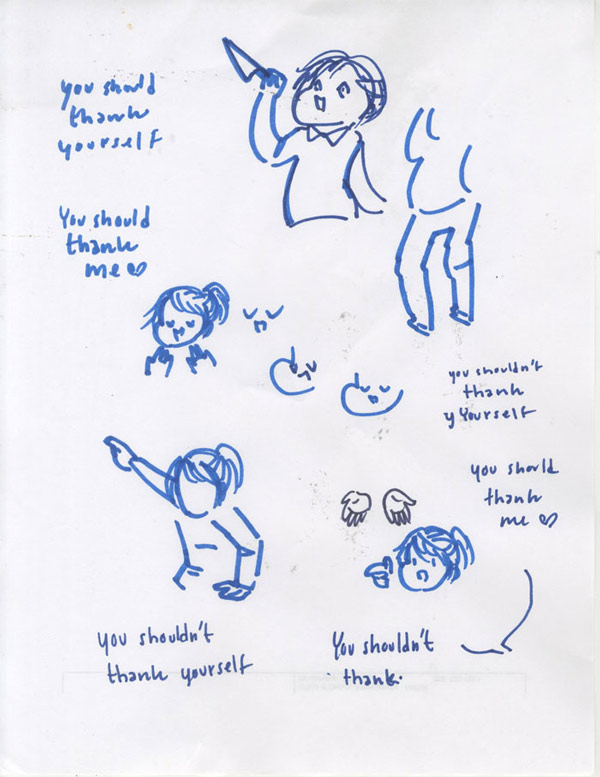 you should
thank
yourself
You should
thank
me
you shouldn't
thank
y Yourself
you should
thank
me
you shouldn't
thank yourself
You shouldn't
thank.